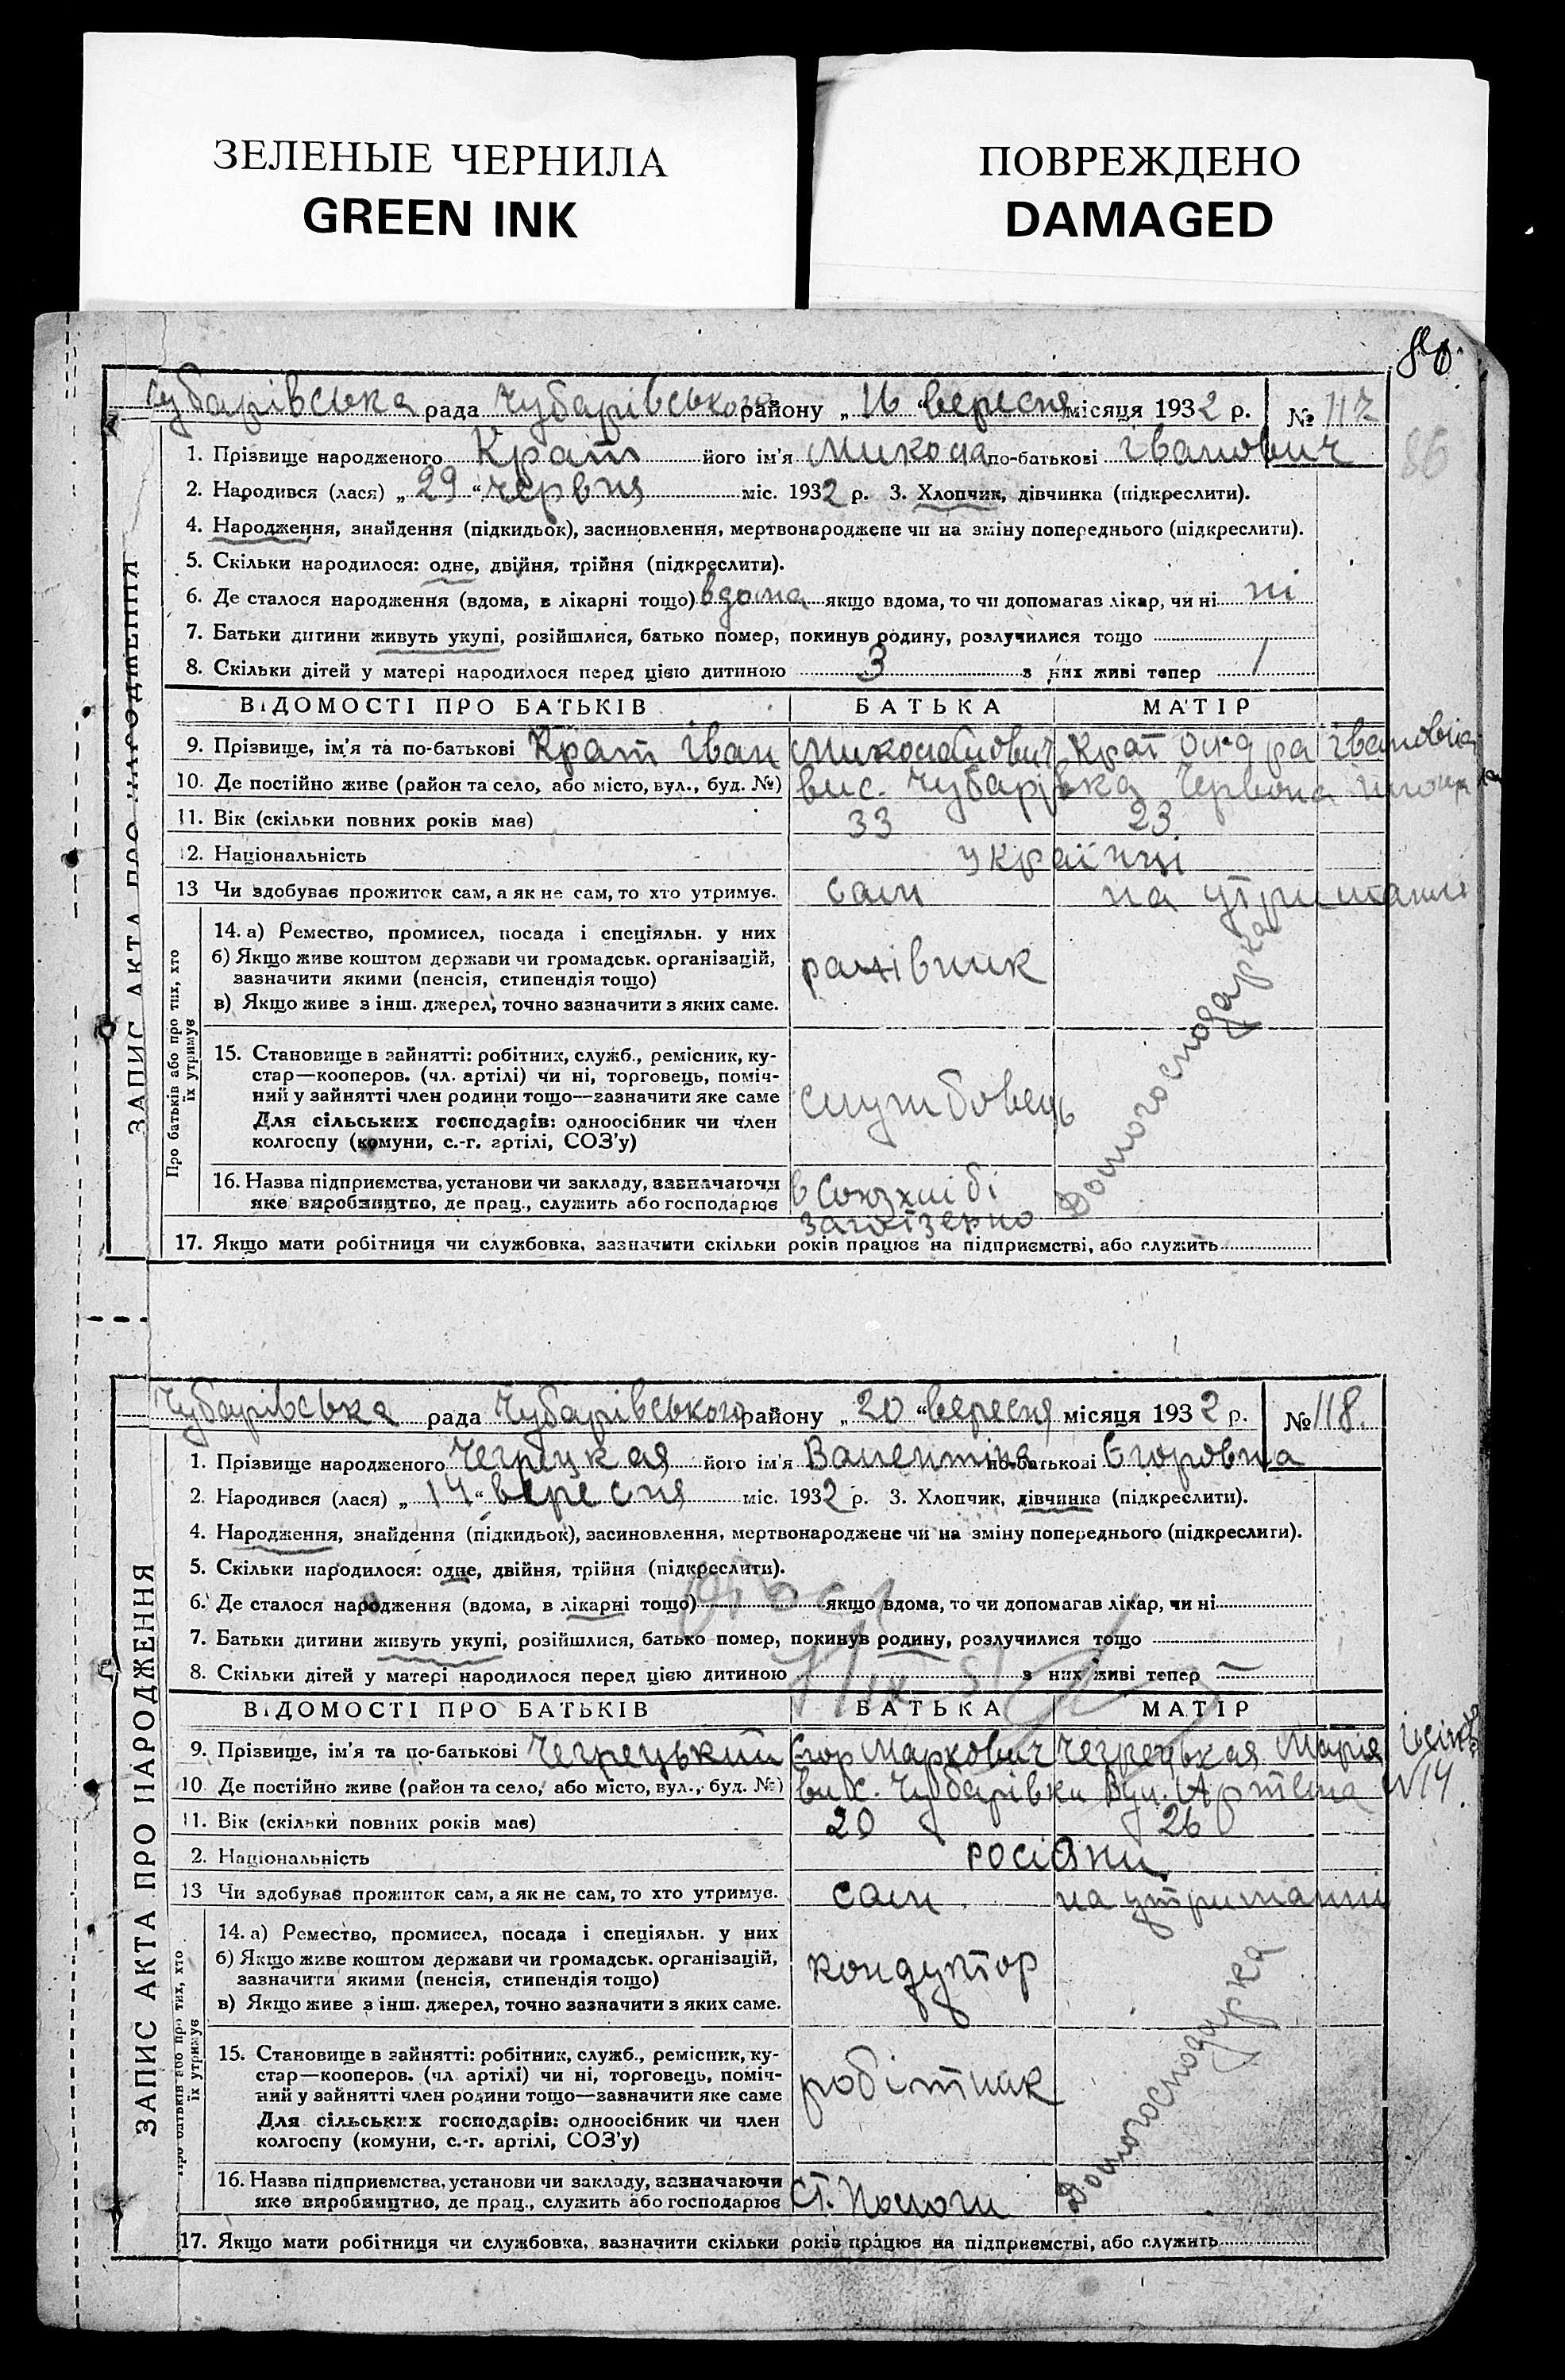 ЗЕЛЕНЫЕ ЧЕРНИЛА
GREEN INK
ПОВРЕЖДЕНО
DAMAGED
86
ЗАПИС АКТА ПРО НАРОДЖЕННЯ
Чубарівська рада Чубарівського району „16“ вересня місяця 1932 р. № 117
1. Прізвище народженого Крат його ім'я Микола по-батькові Іванович
2. Народився (лася) „29“ червня міс. 1932 р. 3. Хлопчик, дівчинка (підкреслити).
4. Народження, знайдення (підкидьок), засиновлення, мертвонароджене чи на зміну попереднього (підкреслити).
5. Скільки народилося: одне, двійня, трійня (підкреслити).
6. Де сталося народження (вдома, в лікарні тощо) вдома якщо вдома, то чи допомагав лікар, чи ні ні
7. Батьки дитини живуть укупі, розійшлися, батько помер, покинув родину, розлучилися тощо
8. Скільки дітей у матері народилося перед цією дитиною 3 з них живі тепер 1
ВІДОМОСТІ ПРО БАТЬКІВ БАТЬКА МАТІР
9. Прізвище, ім'я та по-батькові Крат Іван Миколайович Крат Івановна
10. Де постійно живе (район та село, або місто, вул., буд. №) вис. Чубарівка Червона
11. Вік (скільки повних років має) 33 23
12. Національність українці
13 Чи здобував прожиток сам, а як не сам, то хто утримує. сам на утриманні
Про батьків або про тих, хто їх утримує
14. а) Ремество, промисел, посада і спеціяльн. у них
б) Якщо живе коштом держави чи громадськ. організацій,
зазначити якими (пенсія, стипендія тощо)
в) Якщо живе з інш. джерел, точно зазначити з яких саме.
рахівник
Домогосподарка
15. Становище в зайнятті: робітник, служб., ремісник, ку-
стар—кооперов. (чл. артілі) чи ні, торговець, поміч-
ний у зайнятті член родини тощо—зазначити яке саме
Для сільських господарів: одноосібник чи член
колгоспу (комуни, с.-г. артілі, СОЗ'у)
службовець
16. Назва підприємства, установи чи закладу, зазначаючи
яке виробництво, де прац., служить або господарює
в Союзхлібі
17. Якщо мати робітниця чи службовка, зазначити скільки років працює на підприємстві, або служить
ЗАПИС АКТА ПРО НАРОДЖЕННЯ
Чубарівська рада Чубарівського району „20“ вересня місяця 1932 р. № 118.
1. Прізвище народженого Чегрецкая його ім'я Валентіна по-батькові Єгоровна
2. Народився (лася) „14“ вересня міс. 1932 р. 3. Хлопчик, дівчинка (підкреслити).
4. Народження, знайдення (підкидьок), засиновлення, мертвонароджене чи на зміну попереднього (підкреслити).
5. Скільки народилося: одне, двійня, трійня (підкреслити).
6. Де сталося народження (вдома, в лікарні тощо) якщо вдома, то чи допомагав лікар, чи ні
7. Батьки дитини живуть укупі, розійшлися, батько помер, покинув родину, розлучилися тощо
8. Скільки дітей у матері народилося перед цією дитиною з них живі тепер —
ВІДОМОСТІ ПРО БАТЬКІВ БАТЬКА МАТІР
9. Прізвище, ім'я та по-батькові Чегрецький Єгор Маркович Чегрецькая Марія
10 Де постійно живе (район та село, або місто, вул., буд. №) вис. Чубарівка вул. Артема №14.
11. Вік (скільки повних років має) 20 26
2. Національність росіяни
13 Чи здобував прожиток сам, а як не сам, то хто утримує. сам на утриманні
Про батьків або про тих, хто їх утримує
14. а) Ремество, промисел, посада і спеціяльн. у них
б) Якщо живе коштом держави чи громадськ. організацій,
зазначити якими (пенсія, стипендія тощо)
в) Якщо живе з інш. джерел, точно зазначити з яких саме.
кондуктор
Домогосподарка
15. Становище в зайнятті: робітник, служб., ремісник, ку-
стар—кооперов. (чл. артілі) чи ні, торговець, поміч-
ний у зайнятті член родини тощо—зазначити яке саме
Для сільських господарів: одноосібник чи член
колгоспу (комуни, с.-г. артілі, СОЗ'у)
робітник
16. Назва підприємства, установи чи закладу, зазначаючи
яке виробництво, де прац., служить або господарює
Ст. Пологи
17. Якщо мати робітниця чи службовка, зазначити скільки років працює на підприємстві, або служить